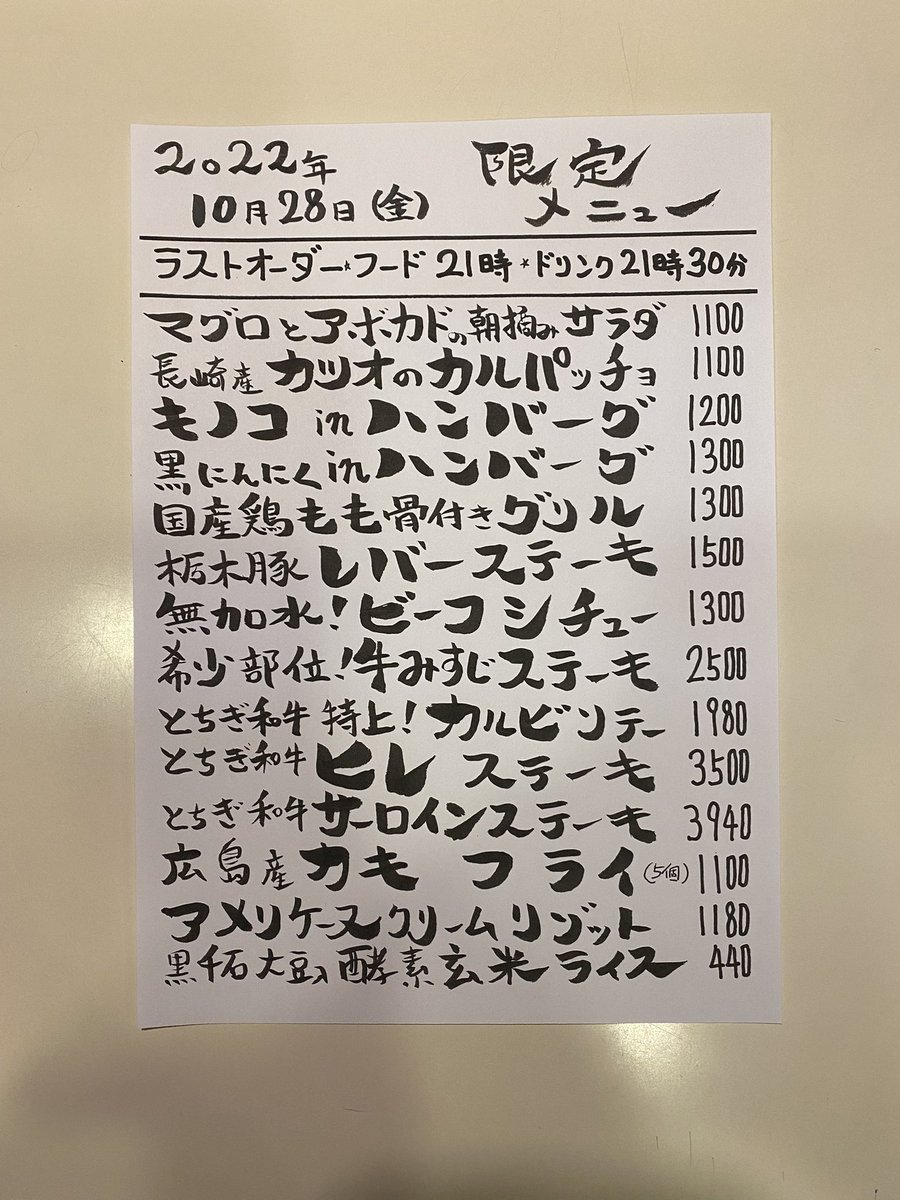 2022年 限定
10月28日(金) メニュー
ラストオーダー★フード 21時★ドリンク21時30分
マグロとアボカドの朝摘みサラダ 1100
長崎産 カツオのカルパッチョ 1100
キノコ in ハンバーグ 1200
黒にんにくinハンバーグ 1300
国産鶏もも骨付きグリル 1300
栃木豚 レバーステーキ 1500
無加水!ビーフシチュー 1300
希少部位!牛みすじステーキ 2500
とちぎ和牛 特上!カルビソテー 1980
とちぎ和牛 ヒレステーキ 3500
とちぎ和牛 サーロインステーキ 3940
広島産 カキフライ(5個) 1100
アメリケーヌクリームリゾット 1180
黒千石大豆入酵素玄米ライス 440